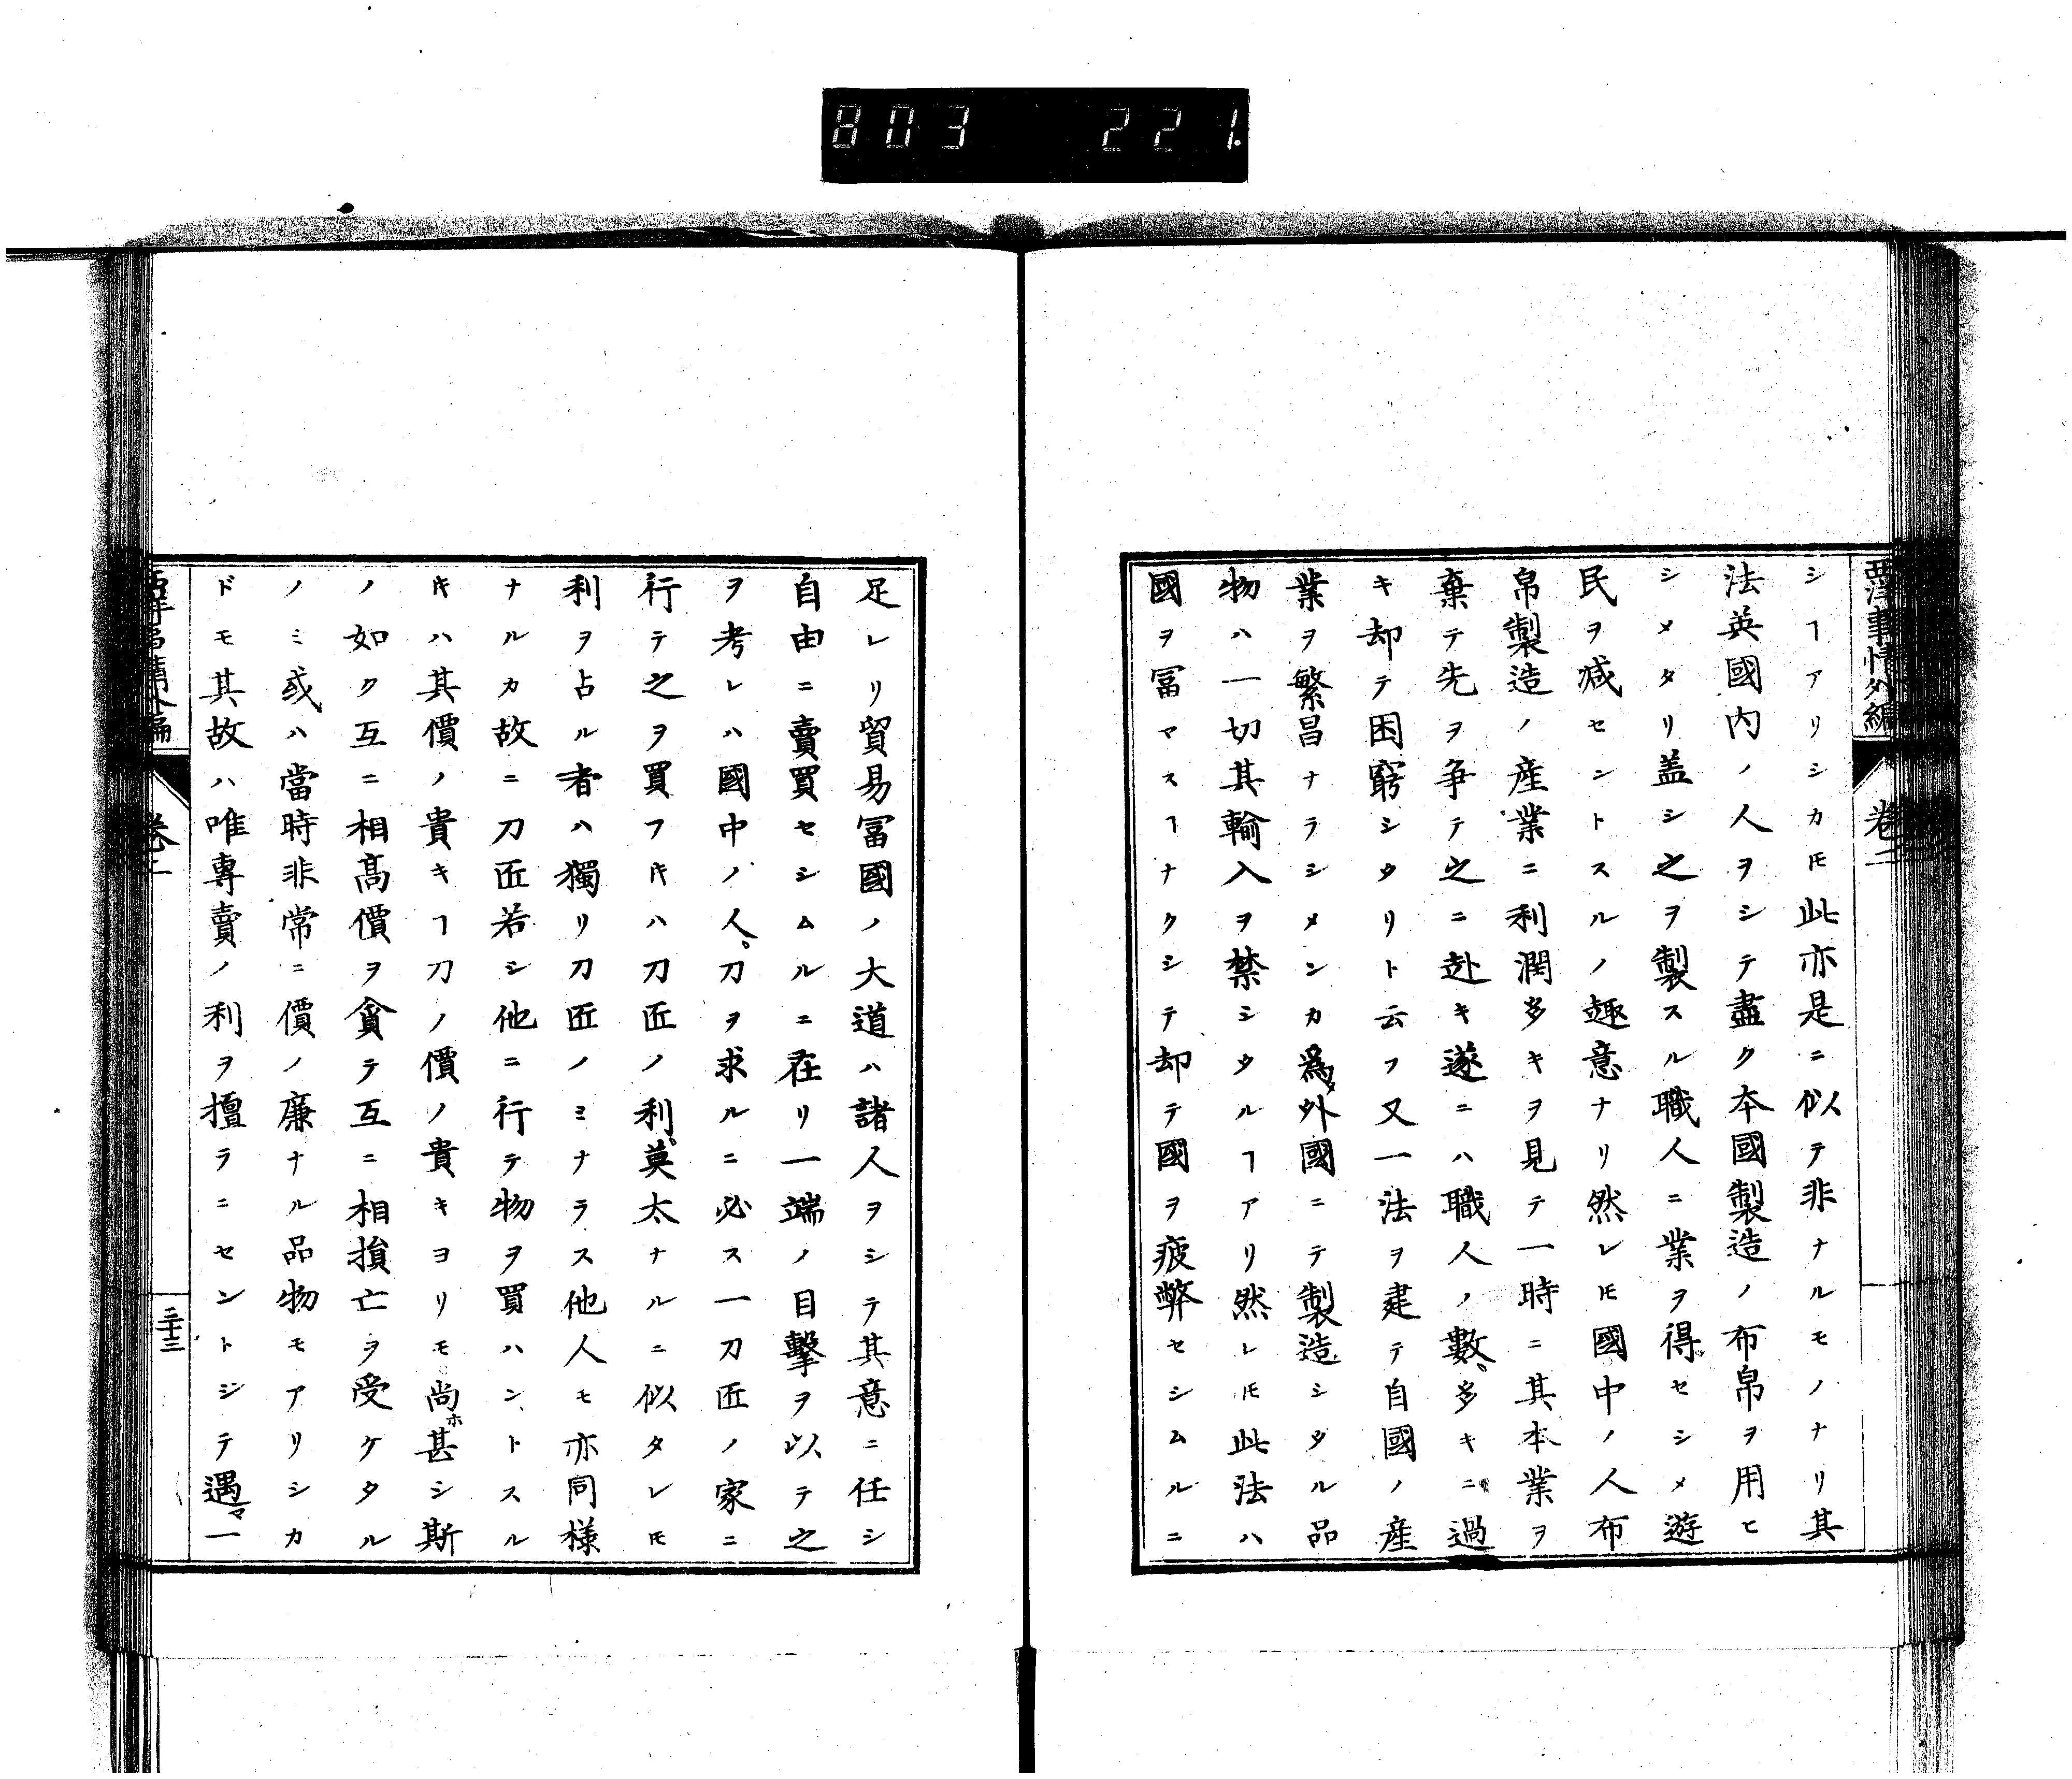 803 221.
西洋事情外編
卷二
シヿアリシカ𪜈此亦是ニ似テ非ナルモノナリ其
法英國内ノ人ヲシテ盡ク本國製造ノ布帛ヲ用ヒ
シメタリ盖シ之ヲ製スル職人ニ業ヲ得セシメ遊
民ヲ減セントスルノ趣意ナリ然レ𪜈國中ノ人布
帛製造ノ産業ニ利潤多キヲ見テ一時ニ其本業ヲ
棄テ先ヲ争テ之ニ赴キ遂ニハ職人ノ數多キニ過
キ却テ困窮シタリト云フ又一法ヲ建テ自國ノ産
業ヲ繁昌ナラシメンカ爲メ外國ニテ製造シタル品
物ハ一切其輸入ヲ禁シタルヿアリ然レ𪜈此法ハ
國ヲ冨マスヿナクシテ却テ國ヲ疲弊セシムルニ
足レリ貿易冨國ノ大道ハ諸人ヲシテ其意ニ任シ
自由ニ賣買セシムルニ在リ一端ノ目擊ヲ以テ之
ヲ考レハ國中ノ人刀ヲ求ルニ必ス一刀匠ノ家ニ
行テ之ヲ買フ𪜈ハ刀匠ノ利莫太ナルニ似タレ𪜈
利ヲ占ル者ハ獨リ刀匠ノミナラス他人モ亦同様
ナルカ故ニ刀匠若シ他ニ行テ物ヲ買ハントスル
𪜈ハ其價ノ貴キヿ刀ノ價ノ貴キヨリモ尚ホ甚シ斯
ノ如ク互ニ相高價ヲ貪テ互ニ相損亡ヲ受ケタル
ノミ或ハ當時非常ニ價ノ廉ナル品物モアリシカ
ドモ其故ハ唯專賣ノ利ヲ擅ラニセントシテ遇マ一
西洋事情外編
卷二
二十三